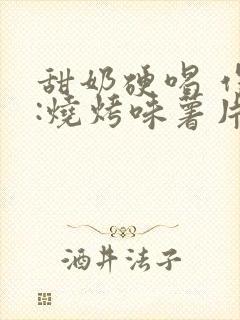 甜奶硬唱
:燒烤味薯片
酒井法子